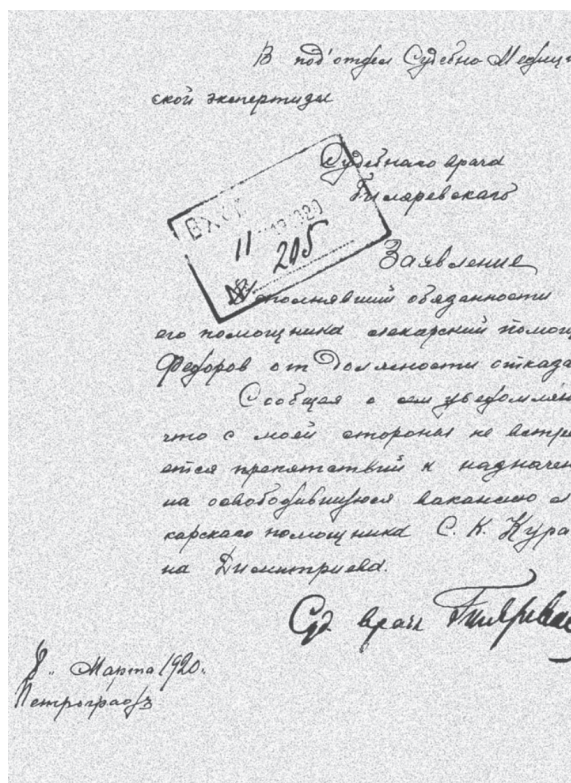 В под'отдел Судебно Медицин
ской экспертизы
Судебнаго врача
Гиляревскаго
ВХОД
11 1920
№ 205
Заявление
Исполнявший обязанности
его помощника лекарский помощ
Федоров от должности отказа
Сообщая о сем уведомляю
что с моей стороны не встре
ется препятствий к назначен
на освободившуюся вакансию л
карскаго помощника С. К. Кура
на Димитриева.
Суд врач Гиляревс
8 " Марта 1920.
Петроградъ